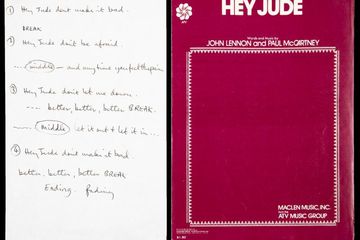 ① Hey Jude don't make it bad.
BREAK
② Hey Jude don't be afraid.
..... middle — and anytime you feel the pain
③ Hey Jude don't let me down.
---- better, better, better BREAK.
..... middle let it out & let it in ...
④ Hey Jude don't make it bad.
better, better, better BREAK
Ending. fading
ATV
HEY JUDE
Words and Music by
JOHN LENNON and PAUL McCARTNEY
MACLEN MUSIC, INC.
ATV MUSIC GROUP